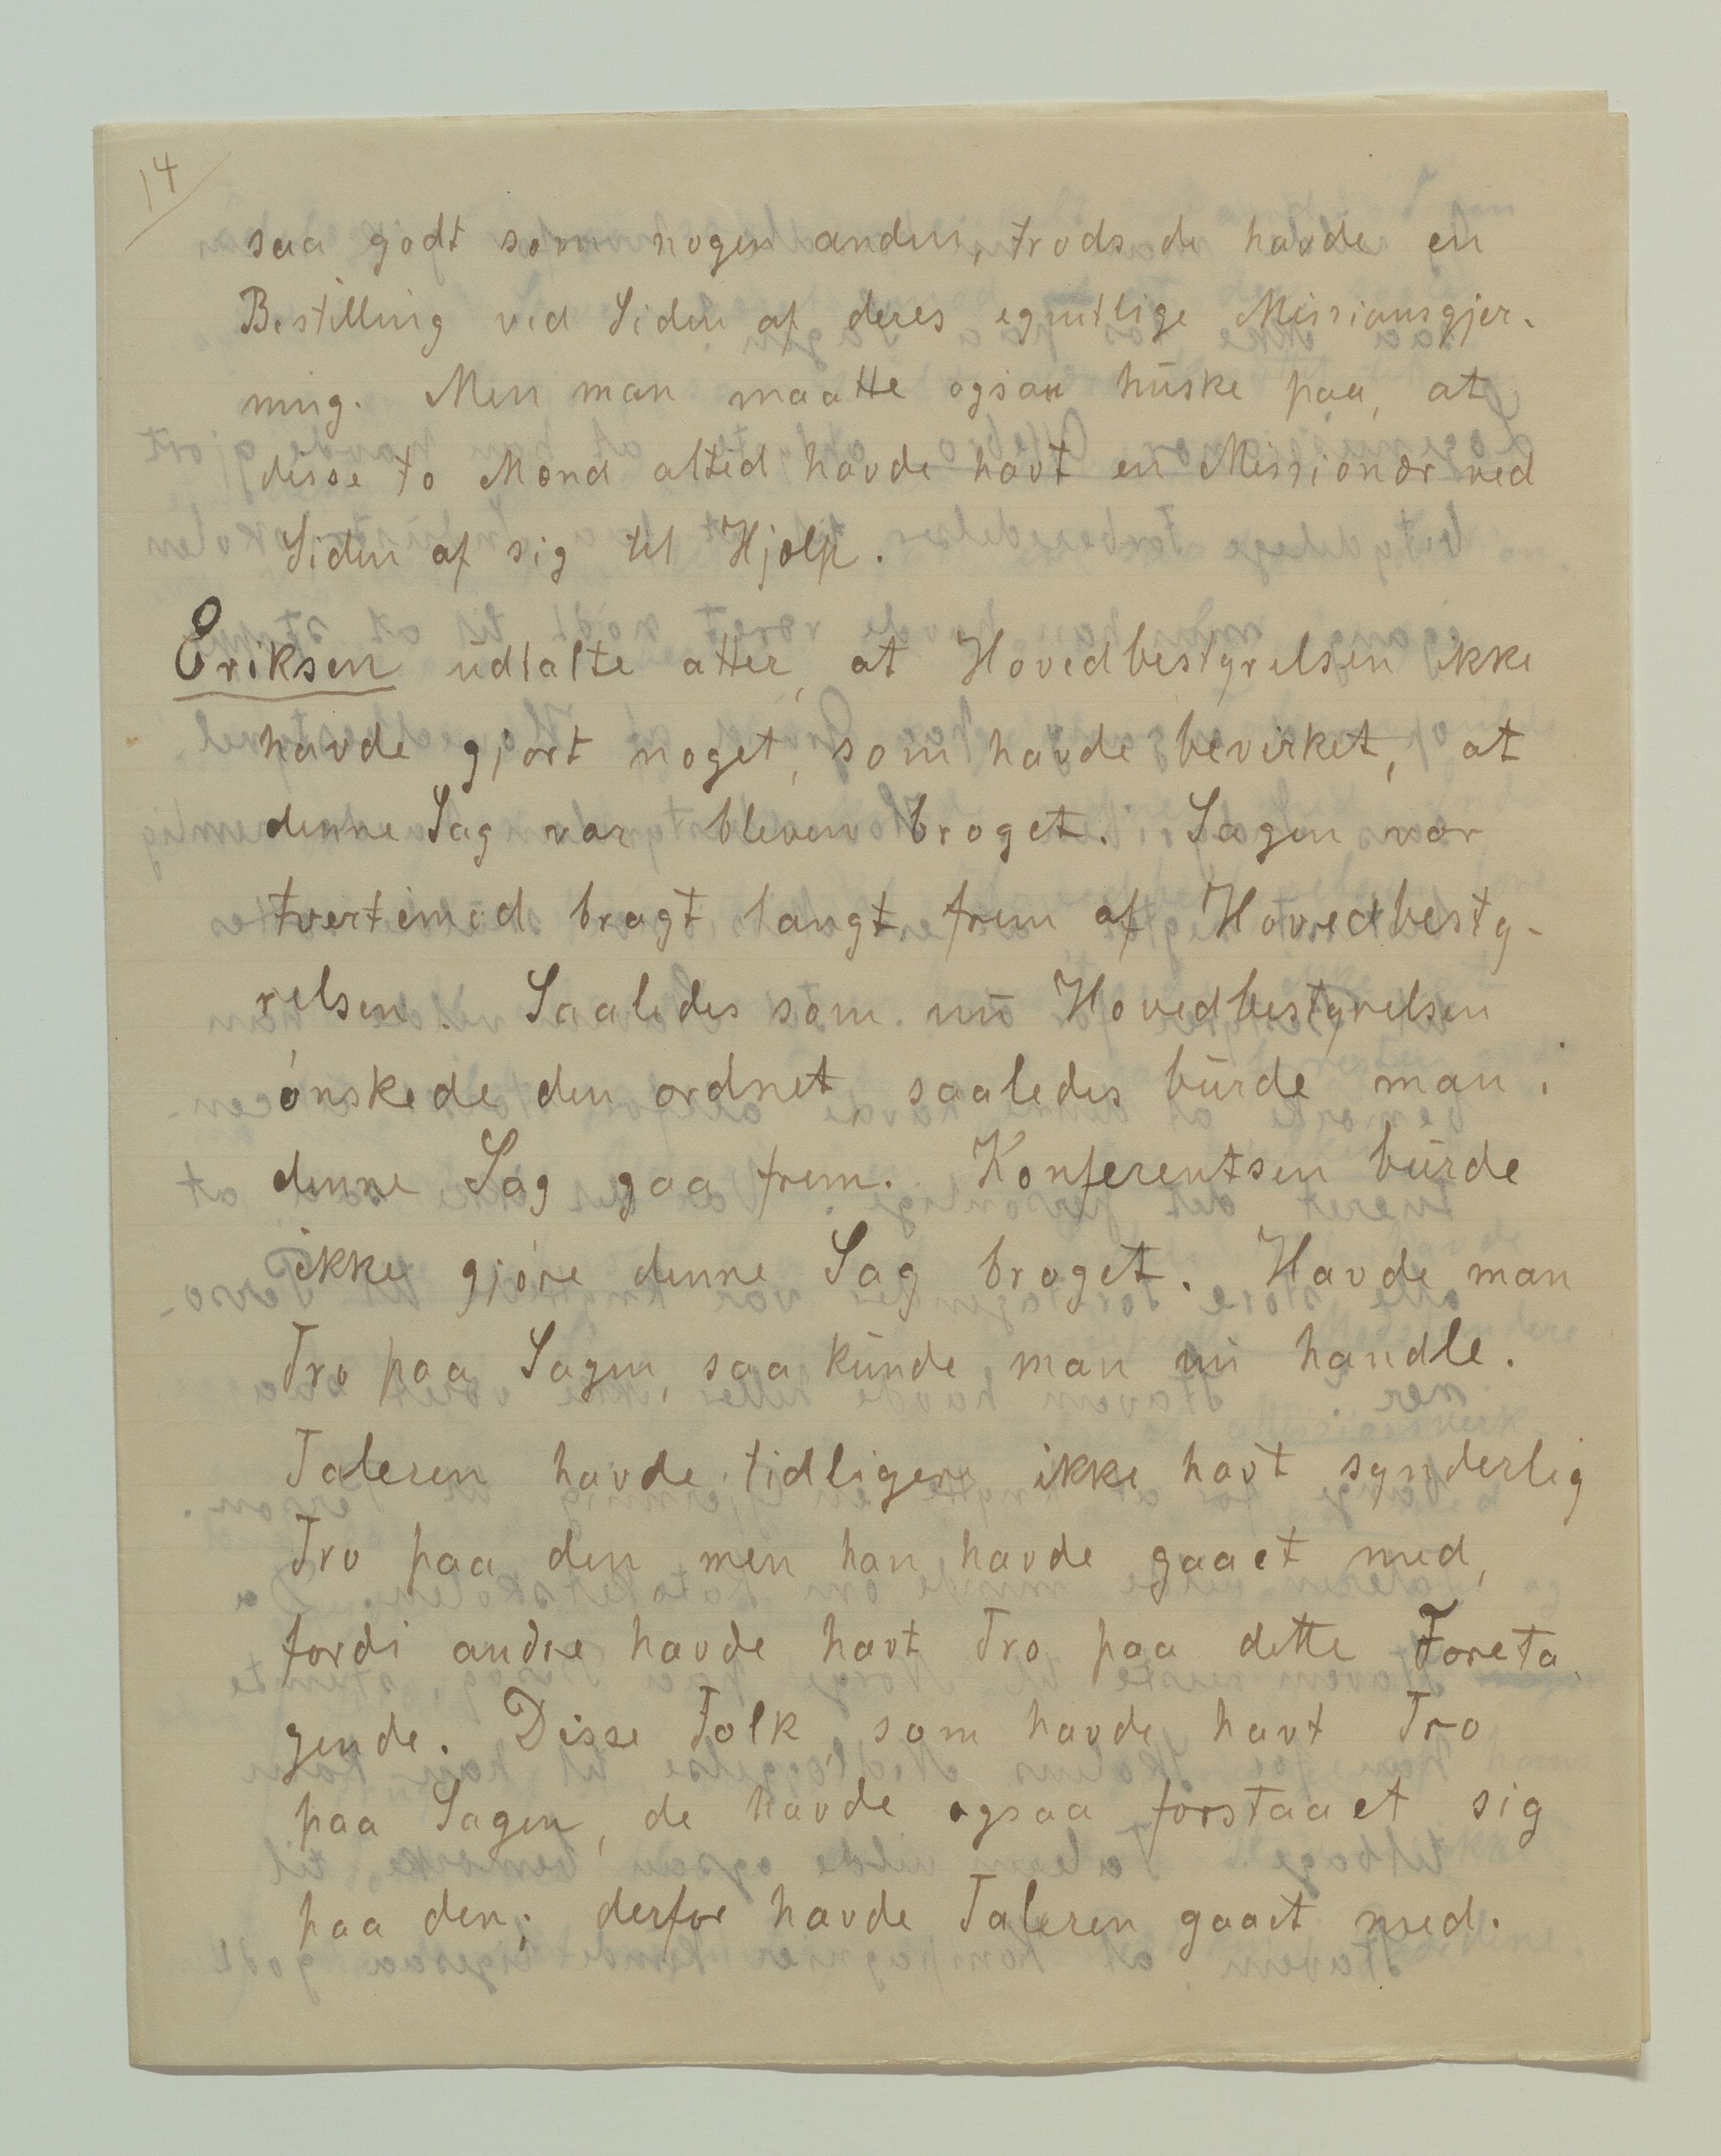 14
saa godt som nogen anden, trods de havde en
Bestilling ved Siden af deres egentlige Missionsgjer-
ning. Men man maatte ogsaa huske paa, at
disse to Mænd altid havde havt en Missionær ved
Siden af sig til Hjælp.
Eriksen udtalte atter, at Hovedbestyrelsen ikke
havde gjort noget, som havde bevirket, at
denne Sag var bleven broget. Sagen var
tvertimod bragt langt frem af Hovedbesty-
relsen. Saaledes som nu Hovedbestyrelsen
ønskede den ordnet, saaledes burde man i
denne Sag gaa frem. Konferentsen burde
ikke gjøre denne Sag broget. Havde man
Tro paa Sagen, saa kunde man nu handle.
Taleren havde tidligere ikke havt synderlig
Tro paa den, men han havde gaaet med,
fordi andre havde havt Tro paa dette Foreta-
gende. Disse Folk, som havde havt Tro
paa Sagen, de havde ogsaa forstaaet sig
paa den; derfor havde Taleren gaaet med.